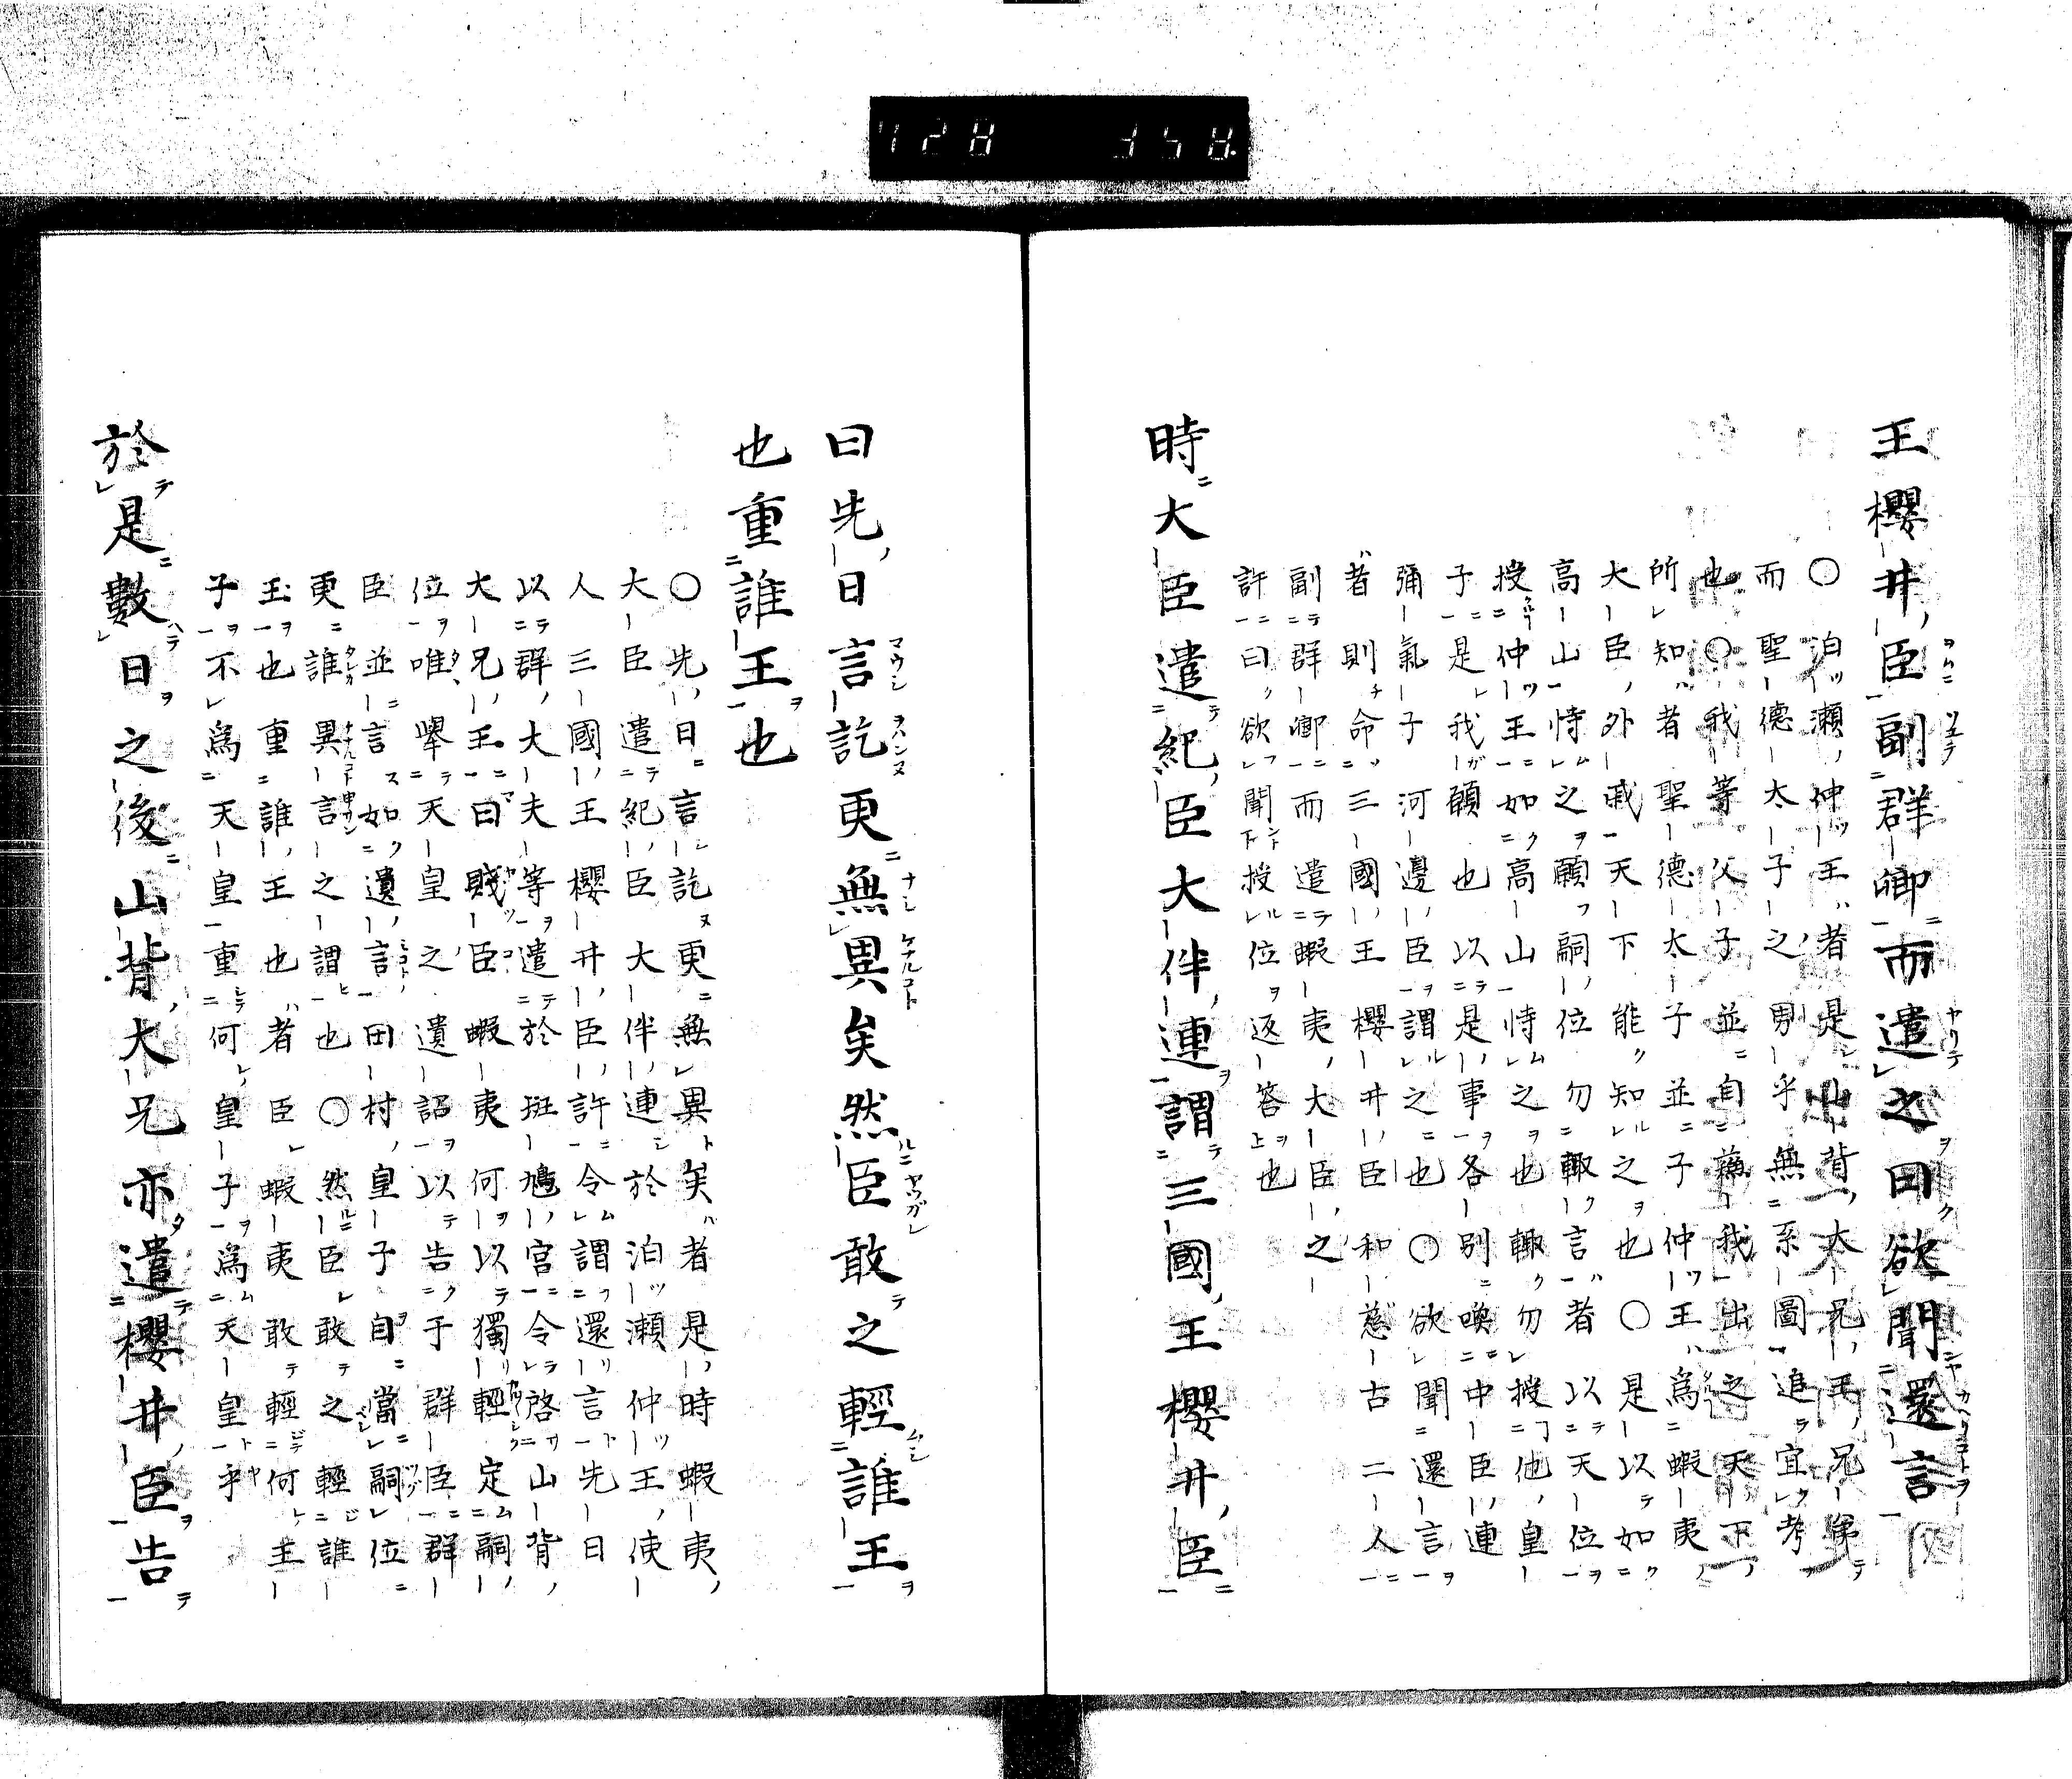 王櫻井臣副群卿而遣之曰欲聞還言
〇泊瀬仲王者是山背大兄王兄弟
而聖德太子之男乎無系圖追宜考
也〇我等父子並自蘓我出之天下
所知者聖德太子並子仲王爲蝦夷
大臣外戚天下能知之也〇是以如
高山恃之願嗣位勿輙言者以天位
授仲王如高山恃之也輙勿授他皇
子是我願也以是事各別喚中臣連
彌氣子河邊臣謂之也〇欲聞還言
者則命三國王櫻井臣和慈古二人
副群卿而遣蝦夷大臣之
許曰欲聞授位返答也
時大臣遣紀臣大伴連謂三國王櫻井臣
曰先日言訖更無異矣然臣敢之輕誰王
也重誰王也
〇先日言訖更無異矣者是時蝦夷
大臣遣紀臣大伴連於泊瀬仲王使
人三國王櫻井臣許令謂還言先日
以群大夫等遣於斑鳩宮令啓山背
大兄王曰賤臣蝦夷何以獨輕定嗣
位唯擧天皇之遺詔以告于群臣群
臣並言如遺言田村皇子自當嗣位
更誰異言之謂也〇然臣敢之輕誰
王也重誰王也者臣蝦夷敢輕何主
子不爲天皇重何皇子爲天皇乎
於是數日之後山背大兄亦遣櫻井臣告